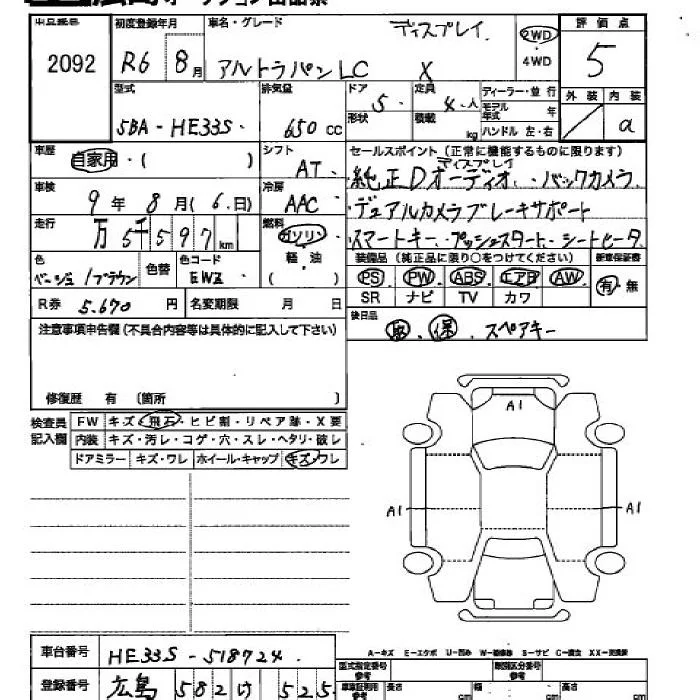 出品番号 2092
初度登録年月 R6 8月
車名・グレード アルトラパンLC X ディスプレイ
2WD・4WD
評価点 5
型式 5BA-HE33S
排気量 650 cc
ドア 形状 5
定員 4人
積載 kg
ディーラー・並行
モデル年式 年
ハンドル 左・右
外装 内装 a
車歴 自家用・( )
シフト AT
セールスポイント(正常に機能するものに限ります)
ディスプレイ
純正Dオーディオ、バックカメラ
デュアルカメラブレーキサポート
スマートキー、プッシュスタート、シートヒータ
車検 9年8月(6日)
冷房 AAC
走行 万5千597km
燃料 ガソリン・軽油 ( )
色 ベージュ/ブラウン
色替
色コード EWZ
装備品(純正品に限り○をつけてください)
PS PW ABS エアB AW
SR ナビ TV カワ
新車保証書 有・無
R券 5,670円
名変期限 月 日
後日品 取、保、スペアキー
注意事項申告欄(不具合内容等は具体的に記入して下さい)
修復歴 有 〔箇所 〕
検査員記入欄
FW キズ・飛石・ヒビ割・リペア跡・X要
内装 キズ・汚レ・コゲ・穴・スレ・ヘタリ・破レ
ドアミラー キズ・ワレ ホイール・キャップ キズ・ワレ
A1
A1
A1
車台番号 HE33S-518724
登録番号 広島 582 け 525
A-キズ E-エクボ U-凹み W-補修跡 S-サビ C-腐食 XX-交換済
型式指定番号 参考
類別区分番号 参考
車庫証明用 参考 長さ cm 幅 cm 高さ cm